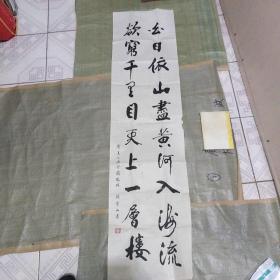 白日依山盡黄河入海流
欲窮千里目更上一層樓